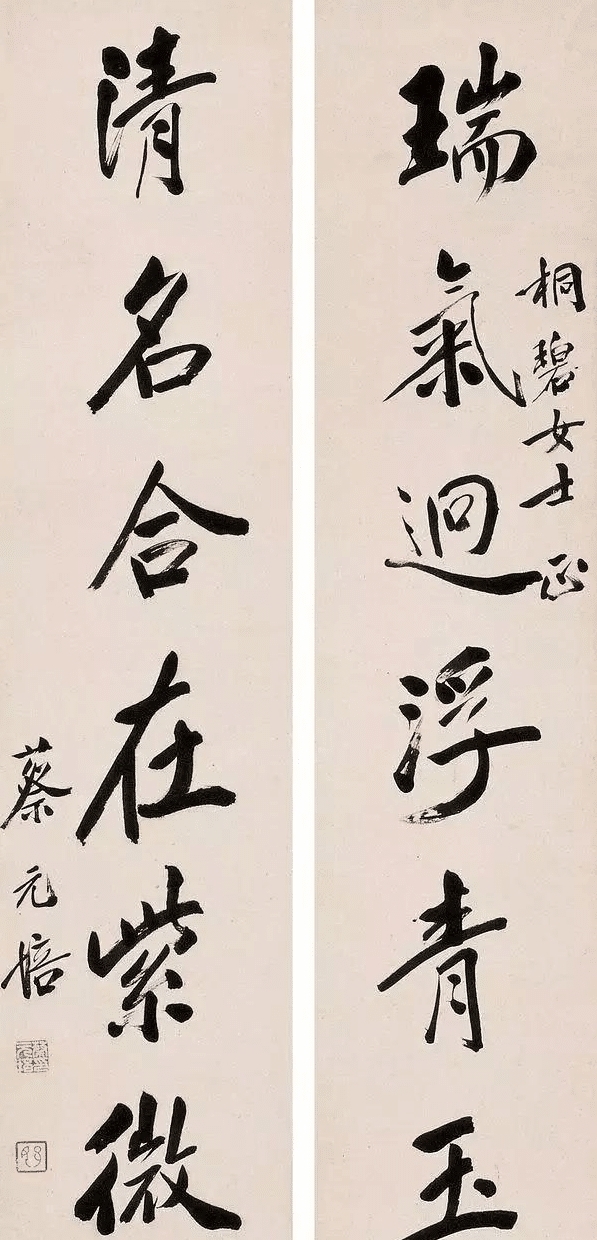 桐碧女士正
瑞氣迥浮青玉
清名合在紫微
蔡元培